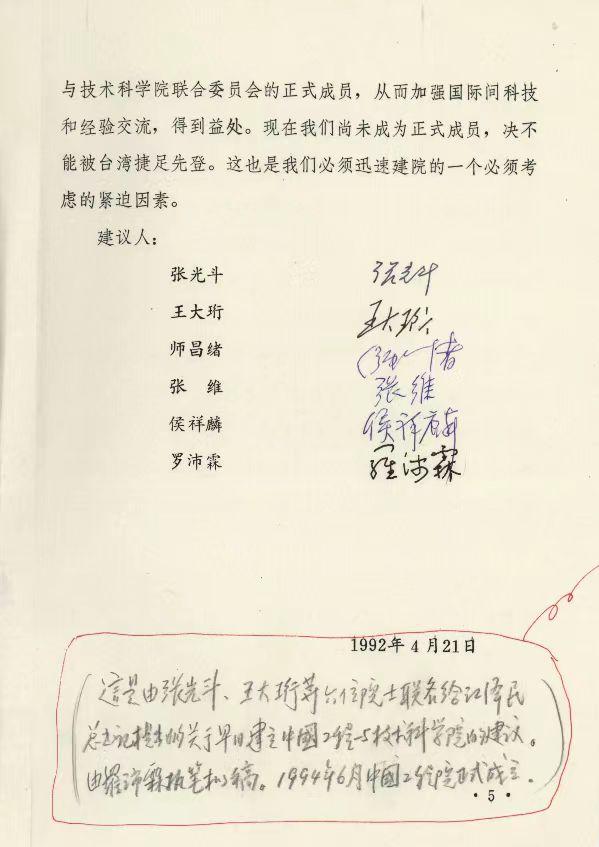 与技术科学院联合委员会的正式成员，从而加强国际间科技
和经验交流，得到益处。现在我们尚未成为正式成员，决不
能被台湾捷足先登。这也是我们必须迅速建院的一个必须考
虑的紧迫因素。
建议人：
张光斗 张光斗
王大珩 王大珩
师昌绪
张 维 张维
侯祥麟 侯祥麟
罗沛霖 羅沛霖
1992年4月21日
這是由张光斗、王大珩等六位院士联名给江泽民
总书记提出的关于早日建立中國工程与技术科学院的建议。
由羅沛霖执笔拟稿。1994年6月中國工程院正式成立.
·5·